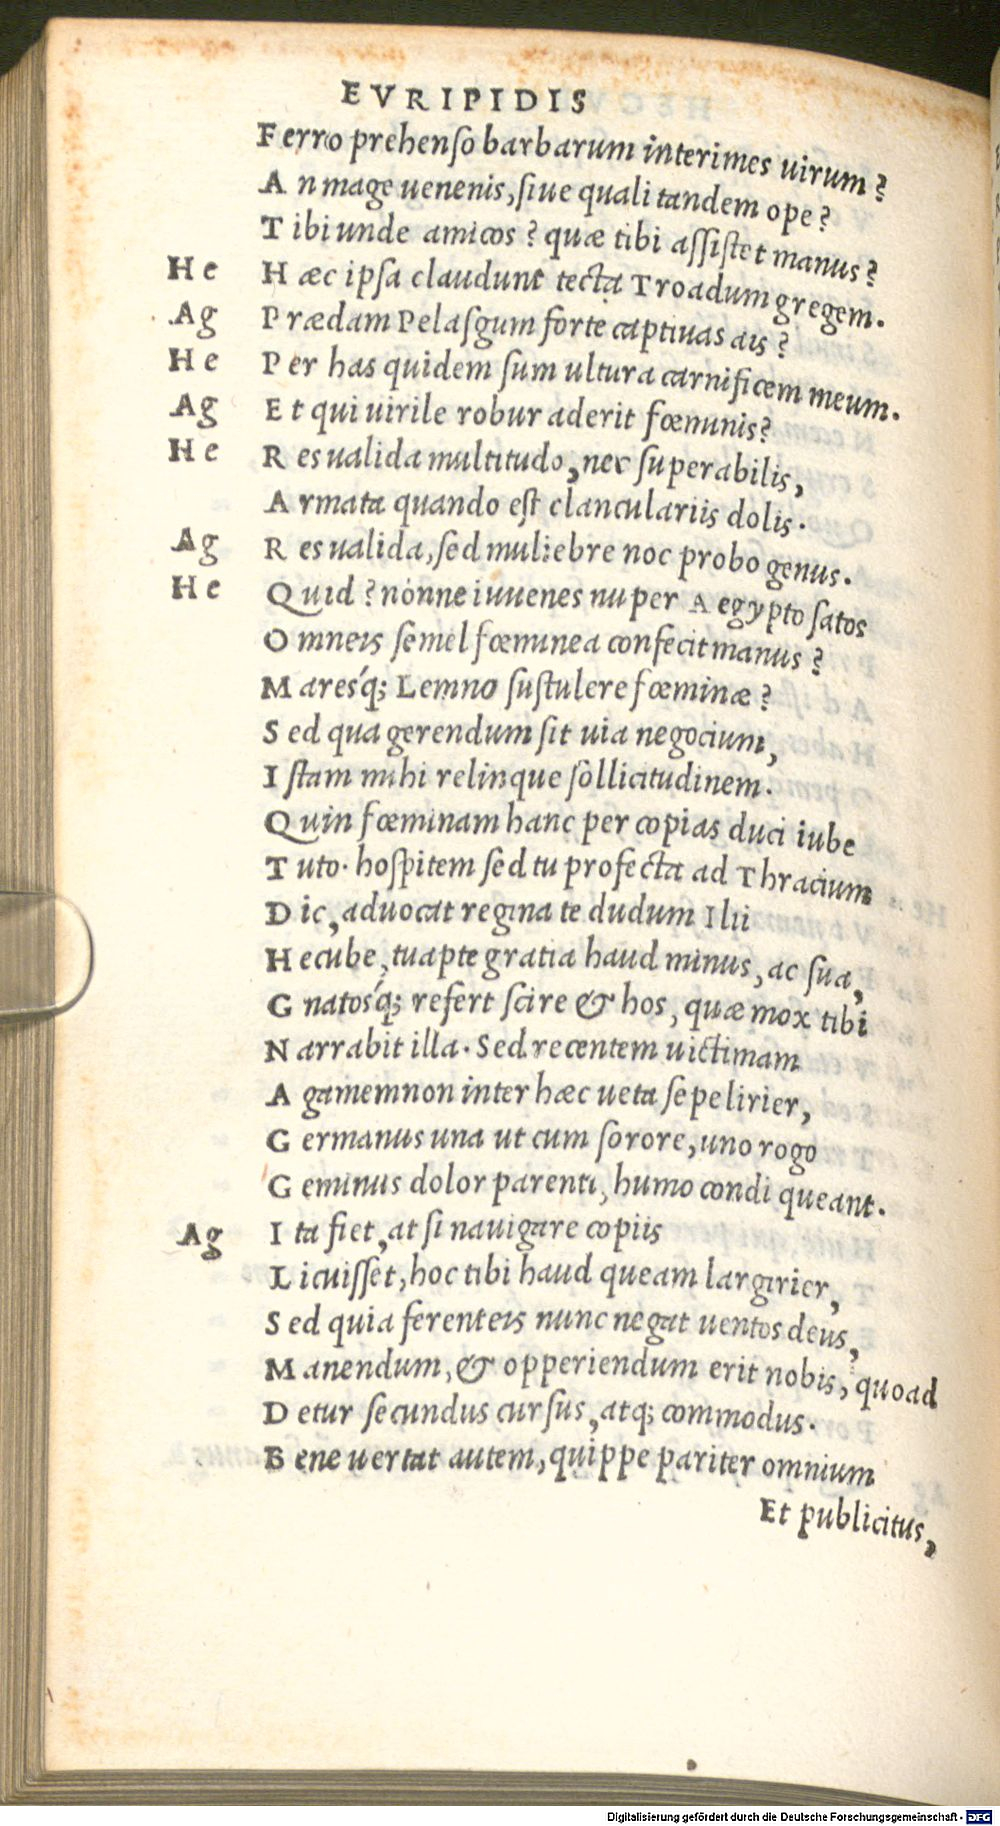 EVRIPIDIS
Ferro prehenso barbarum interimes uirum?
An mage uenenis, siue quali tandem ope?
Tibi unde amicos? quæ tibi assistet manus?
He Hæc ipsa claudunt tecta Troadum gregem.
Ag Prædam Pelasgum forte captiuas ais?
He Per has quidem sum ultura carnificem meum.
Ag Et qui uirile robur aderit fœminis?
He Res ualida multitudo, nec superabilis,
Armata quando est clanculariis dolis.
Ag Res ualida, sed muliebre noc probo genus.
He Quid? nónne iuuenes nuper Aegypto satos
Omneis semel fœminea confecit manus?
Marésq; Lemno sustulere fœminæ?
Sed qua gerendum sit uia negocium,
Istam mihi relinque sollicitudinem.
Quin fœminam hanc per copias duci iube
Tuto. hospitem sed tu profecta ad Thracium
Dic, aduocat regina te dudum Ilii
Hecube, tuapte gratia haud minus, ac sua,
Gnatósq; refert scire & hos, quæ mox tibi
Narrabit illa. Sed recentem uictimam
Agamemnon inter hæc ueta sepelirier,
Germanus una ut cum sorore, uno rogo
Geminus dolor parenti, humo condi queant.
Ag Ita fiet, at si nauigare copiis
Licuisset, hoc tibi haud queam largirier,
Sed quia ferenteis nunc negat uentos deus,
Manendum, & opperiendum erit nobis, quoad
Detur secundus cursus, atq; commodus.
Bene uertat autem, quippe pariter omnium
Et publicitus,
Digitalisierung gefördert durch die Deutsche Forschungsgemeinschaft - DFG